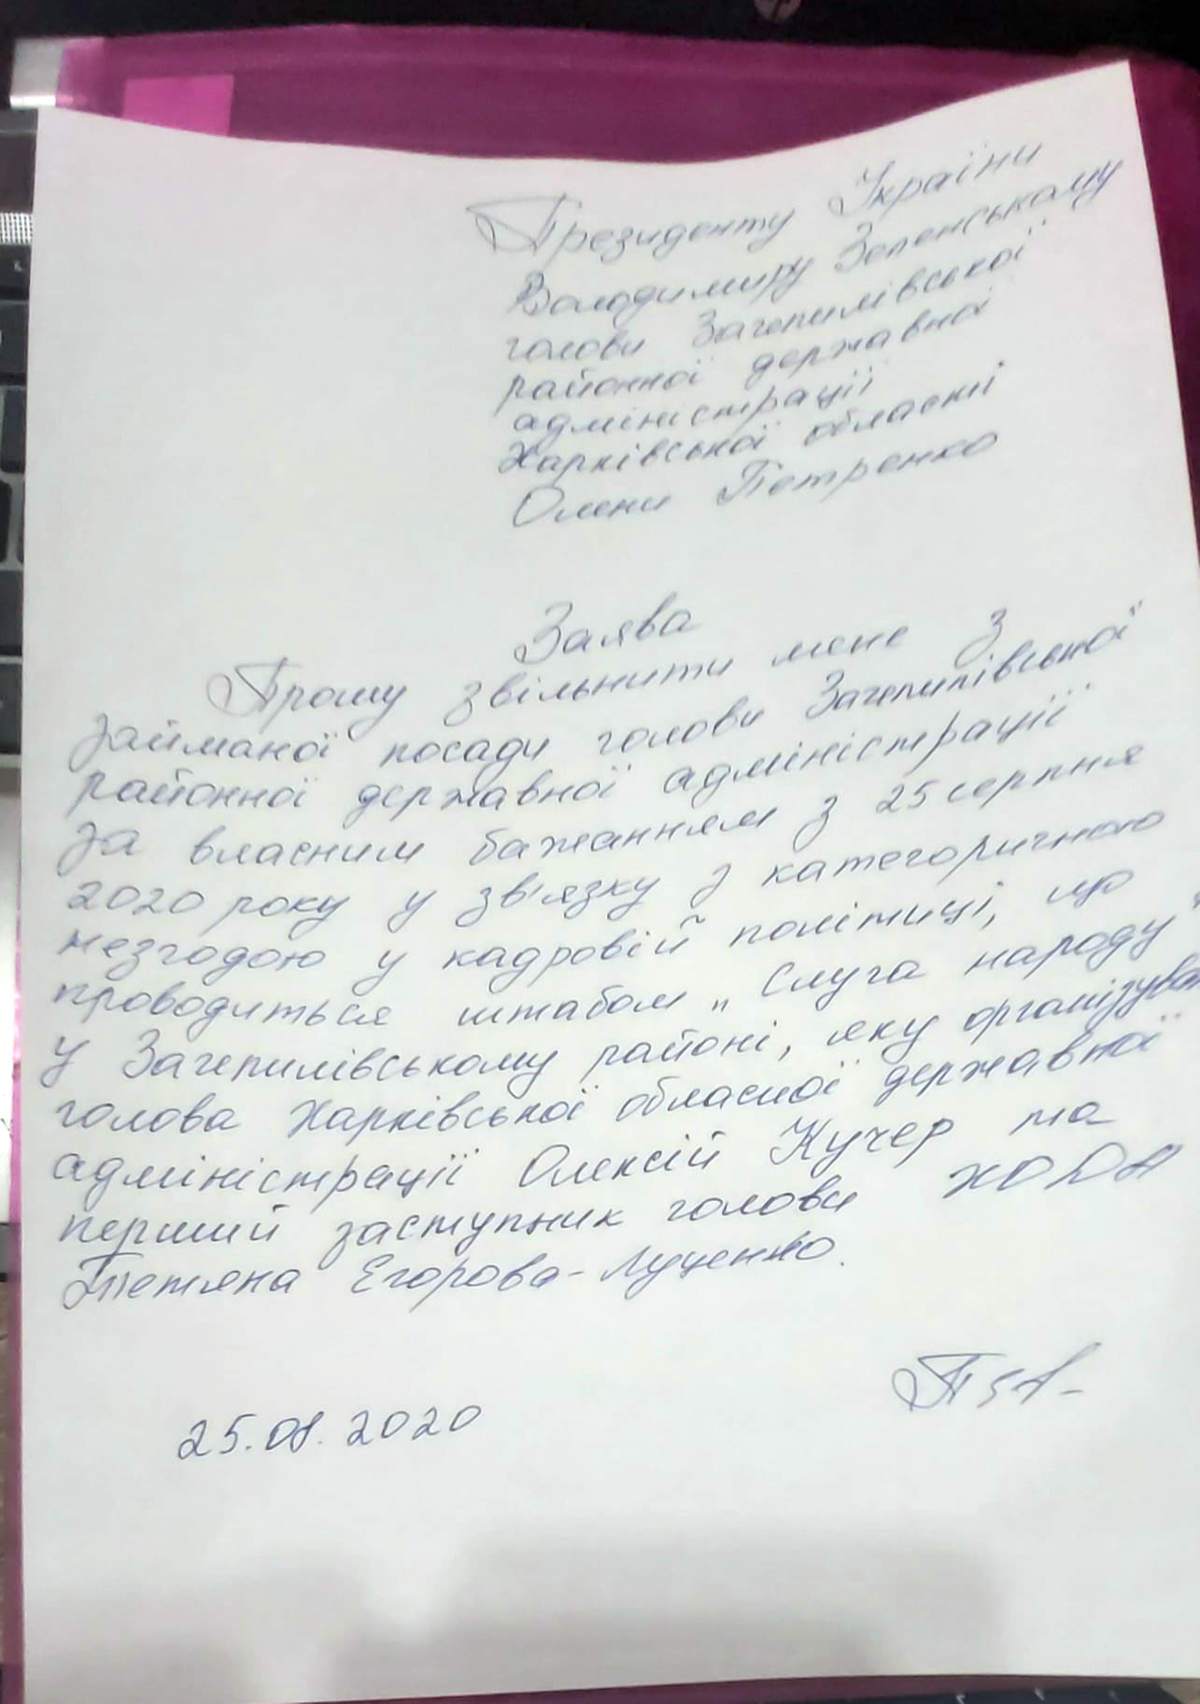 Президенту України
Володимиру Зеленському
голови Зачепилівської
районної державної
адміністрації
Харківської області
Олени Петренко
Заява
Прошу звільнити мене з
займаної посади голови Зачепилівської
районної державної адміністрації
за власним бажанням з 25 серпня
2020 року у зв'язку з категоричного
незгодою у кадровій політиці, що
проводиться штабом „Слуга народу"
у Зачепилівському районі, яку організував
голова Харківської обласної державної
адміністрації Олексій Кучер та
перший заступник голови ХОДА
Тетяна Егорова-Луценко.
25.08.2020